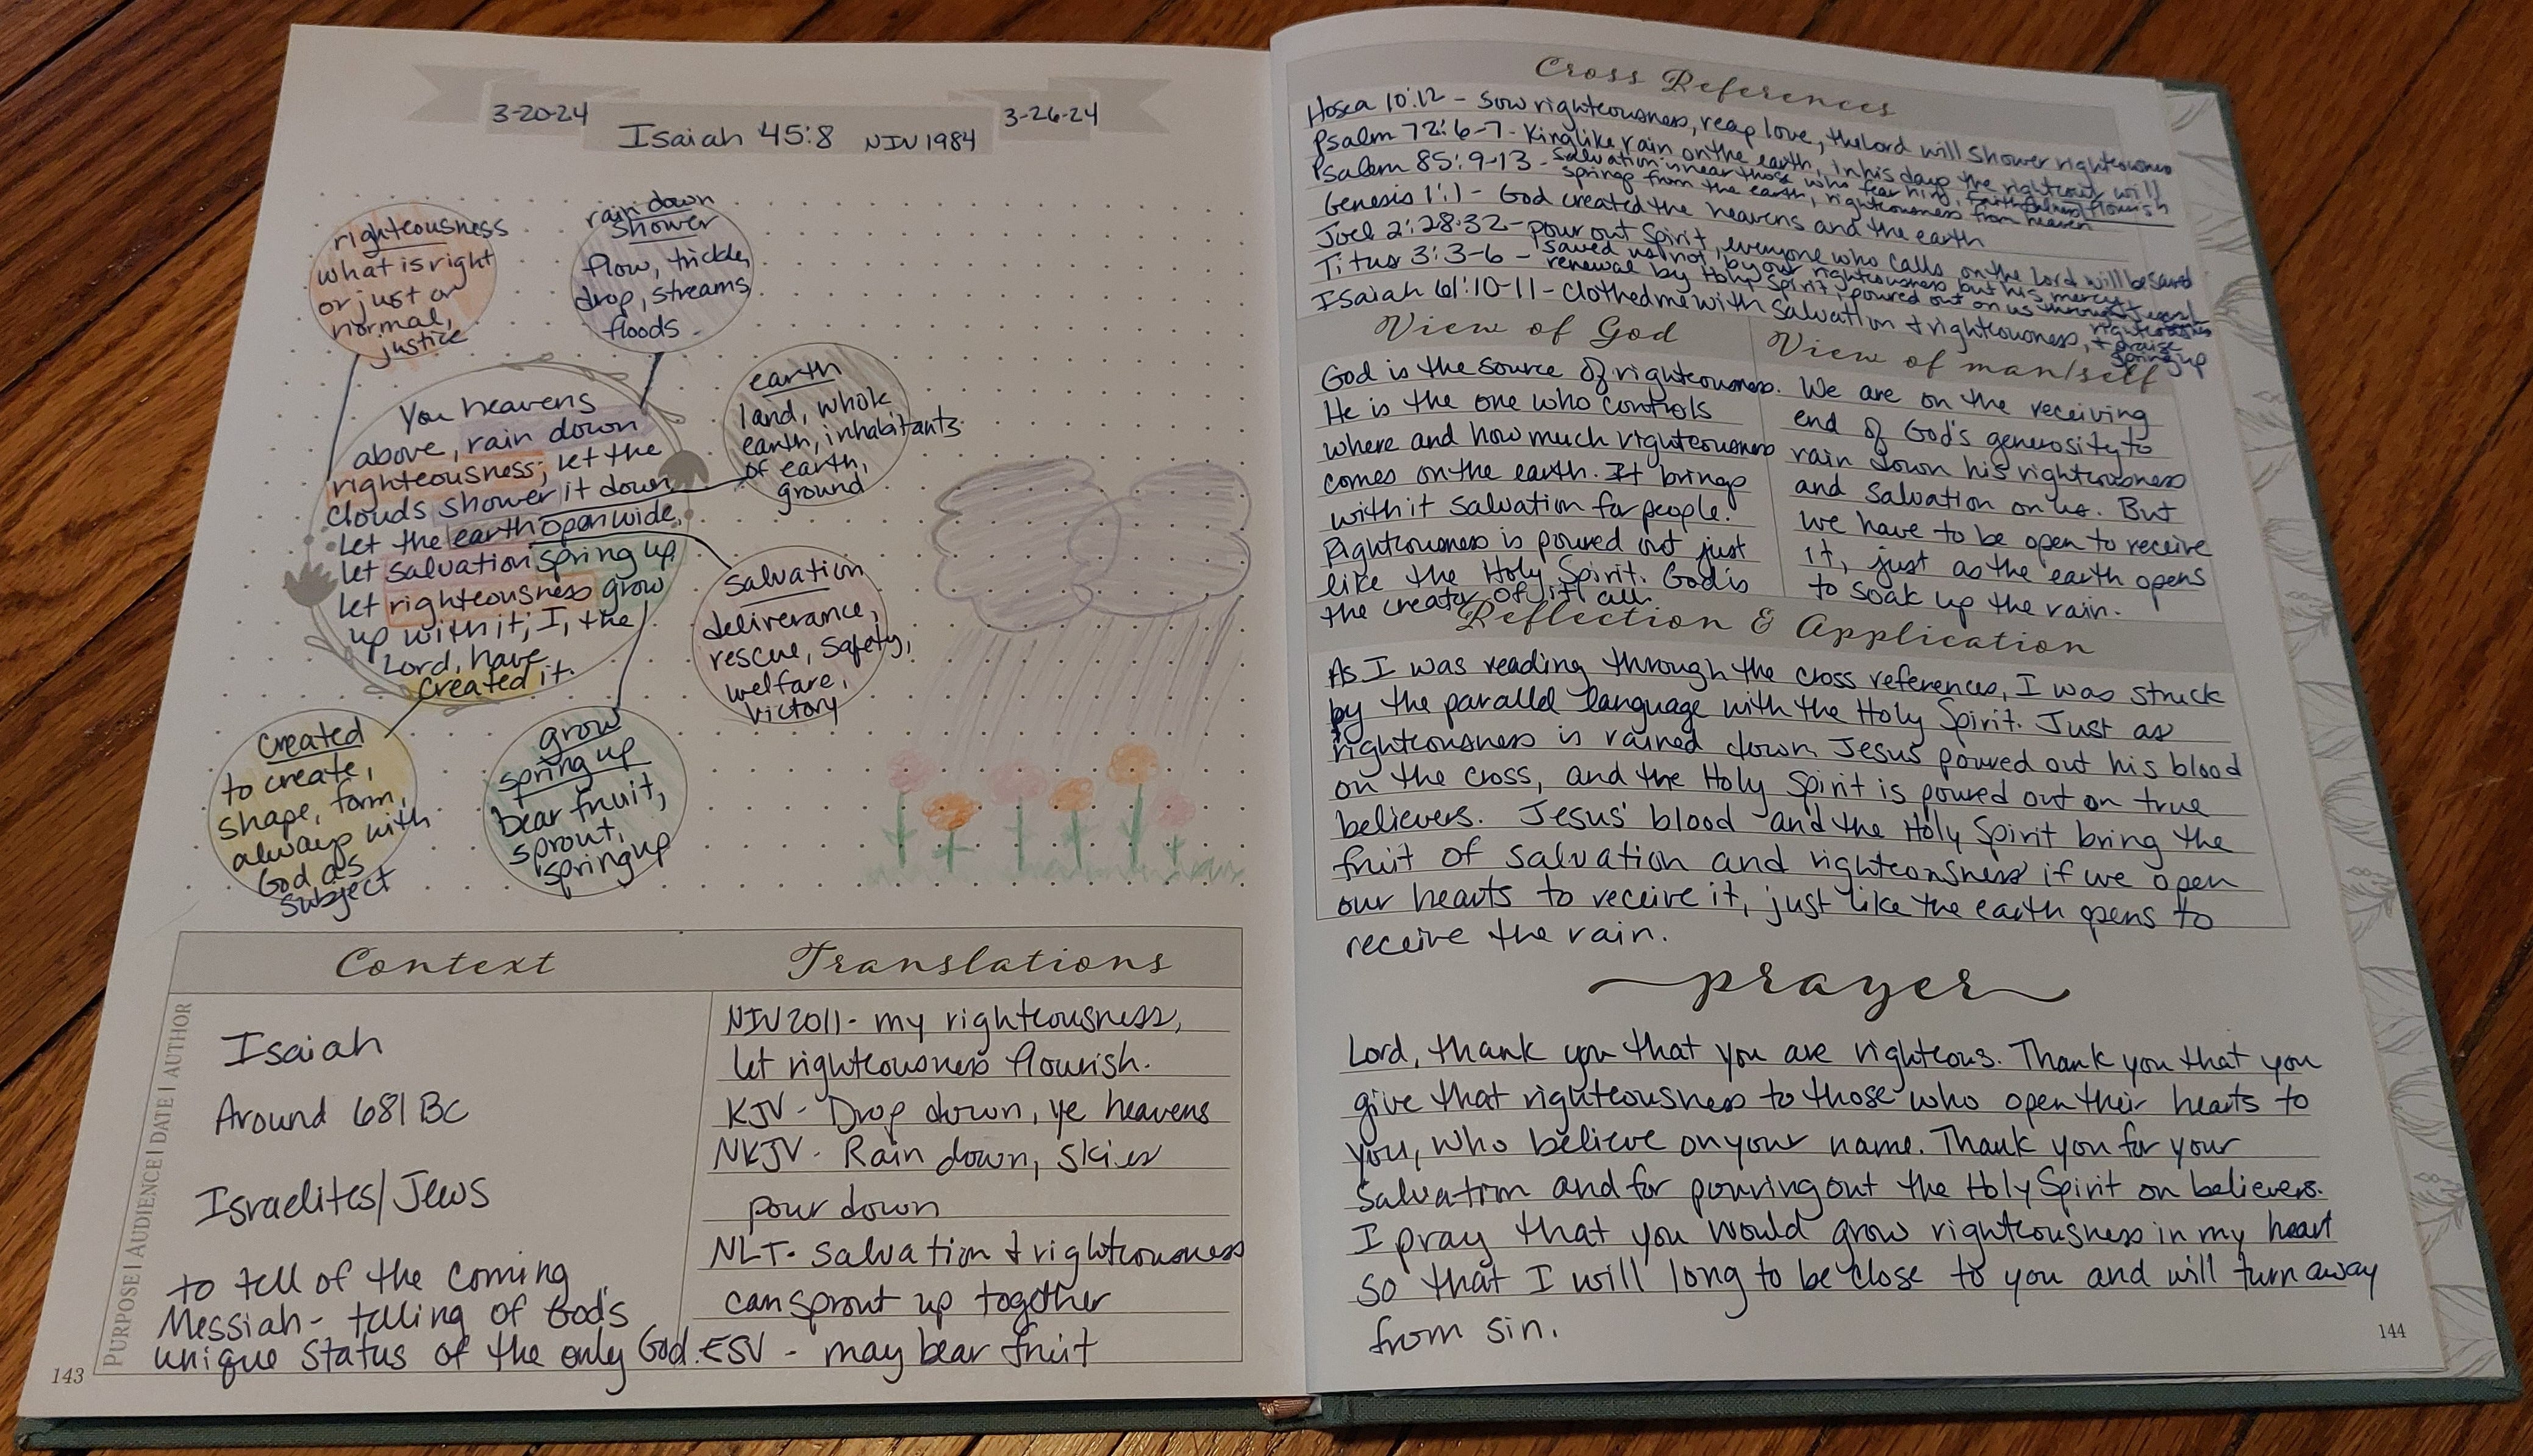 3-20-24
3-26-24
Isaiah 45:8 NIV 1984
righteousness
what is right
or just or
normal,
justice
rain down
shower
flow, trickle,
drop, streams,
floods
earth
land, whole
earth, inhabitants
of earth,
ground
You heavens
above, rain down
righteousness; let the
clouds shower it down
Let the earth open wide,
let salvation spring up
let righteousness grow
up with it; I, the
Lord, have
created it.
salvation
deliverance,
rescue, safety,
welfare,
victory
created
to create,
shape, form,
always with
God as
subject
grow
spring up
bear fruit,
sprout,
spring up
Context
PURPOSE | AUDIENCE | DATE | AUTHOR
Isaiah
Around 681 BC
Israelites/Jews
to tell of the coming
Messiah - telling of God's
unique status of the only God.
Translations
NIV 2011 - my righteousness,
let righteousness flourish.
KJV - Drop down, ye heavens
NKJV - Rain down, skies
pour down
NLT - salvation & righteousness
can sprout up together
ESV - may bear fruit
143
Cross References
Hosea 10:12 - sow righteousness, reap love, the Lord will shower righteousness
Psalm 72:6-7 - King like rain on the earth, in his days the righteous will flourish
Psalem 85:9-13 - salvation is near those who fear him, faithfulness
springs from the earth, righteousness from heaven
Genesis 1:1 - God created the heavens and the earth
Joel 2:28-32 - pour out Spirit, everyone who calls on the Lord will be saved
Titus 3:3-6 - saved us not by our righteousness but his mercy,
renewal by Holy Spirit, poured out on us through Jesus
Isaiah 61:10-11 - clothed me with salvation & righteousness, righteousness
& praise
spring up
View of God
God is the source of righteousness.
He is the one who controls
where and how much righteousness
comes on the earth. It brings
with it salvation for people.
Righteousness is poured out just
like the Holy Spirit. God is
the creator of it all.
View of man/self
We are on the receiving
end of God's generosity to
rain down his righteousness
and salvation on us. But
we have to be open to receive
it, just as the earth opens
to soak up the rain.
Reflection & Application
As I was reading through the cross references, I was struck
by the parallel language with the Holy Spirit. Just as
righteousness is rained down, Jesus poured out his blood
on the cross, and the Holy Spirit is poured out on true
believers. Jesus' blood and the Holy Spirit bring the
fruit of salvation and righteousness if we open
our hearts to receive it, just like the earth opens to
receive the rain.
prayer
Lord, thank you that you are righteous. Thank you that you
give that righteousness to those who open their hearts to
you, who believe on your name. Thank you for your
salvation and for pouring out the Holy Spirit on believers.
I pray that you would grow righteousness in my heart
so that I will long to be close to you and will turn away
from sin.
144